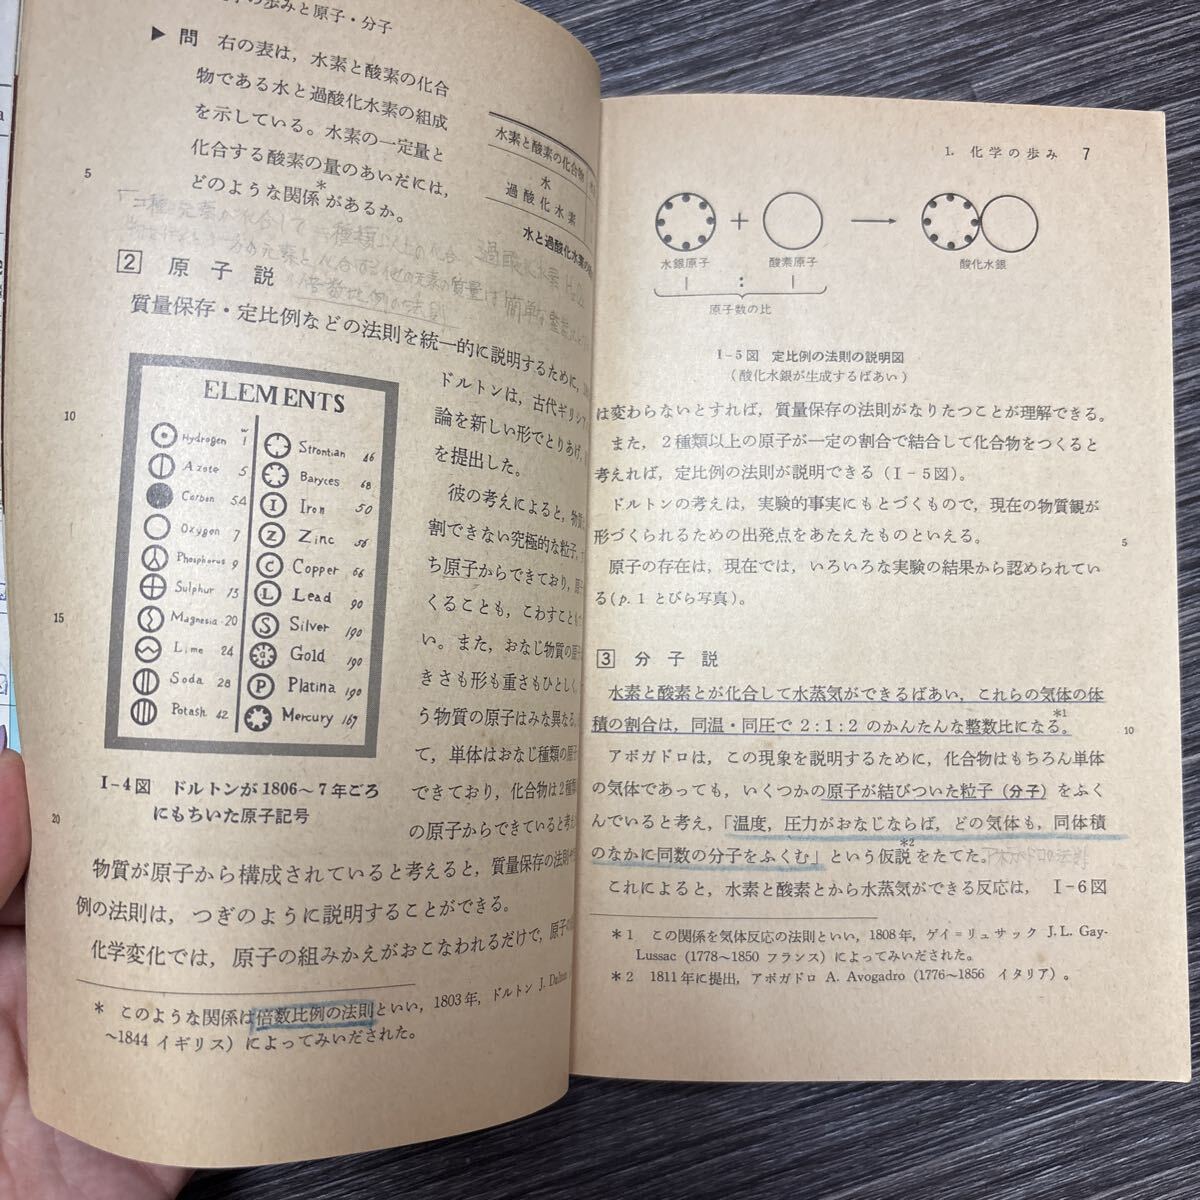 の歩みと原子・分子
▶ 問 右の表は，水素と酸素の化合
物である水と過酸化水素の組成
を示している。水素の一定量と
化合する酸素の量のあいだには，
どのような関係*があるか。
水素と酸素の化合物
水
過酸化水素
水と過酸化水素の
5
2 原子説
質量保存・定比例などの法則を統一的に説明するために，
ドルトンは，古代ギリシ
論を新しい形でとりあげ，
を提出した。
彼の考えによると，物質
割できない究極的な粒子，
ち原子からできており，原
くることも，こわすことも
い。また，おなじ物質の原
きさも形も重さもひとしく，
う物質の原子はみな異なる。
て，単体はおなじ種類の原
できており，化合物は2種
の原子からできていると考
10
15
20
ELEMENTS
Hydrogen 1
Azote 5
Carbon 54
Oxygen 7
Phosphorus 9
Sulphur 13
Magnesia 20
Lime 24
Soda 28
Potash 42
Strontian 46
Baryces 68
I Iron 50
Z Zinc 56
C Copper 56
L Lead 90
S Silver 190
G Gold 190
P Platina 190
Mercury 167
I-4図 ドルトンが1806〜7年ごろ
にもちいた原子記号
物質が原子から構成されていると考えると，質量保存の法則や
例の法則は，つぎのように説明することができる。
化学変化では，原子の組みかえがおこなわれるだけで，原子の
* このような関係は倍数比例の法則といい，1803年，ドルトン J. Dalton
〜1844 イギリス）によってみいだされた。
倍数比例の法則
1. 化学の歩み 7
＋
水銀原子 酸素原子 酸化水銀
1 : 1
原子数の比
I-5図 定比例の法則の説明図
（酸化水銀が生成するばあい）
は変わらないとすれば，質量保存の法則がなりたつことが理解できる。
また，2種類以上の原子が一定の割合で結合して化合物をつくると
考えれば，定比例の法則が説明できる（I-5図）。
ドルトンの考えは，実験的事実にもとづくもので，現在の物質観が
形づくられるための出発点をあたえたものといえる。
5
原子の存在は，現在では，いろいろな実験の結果から認められてい
る（p. 1 とびら写真）。
3 分子説
水素と酸素とが化合して水蒸気ができるばあい，これらの気体の体
積の割合は，同温・同圧で 2:1:2 のかんたんな整数比になる。*1
10
アボガドロは，この現象を説明するために，化合物はもちろん単体
の気体であっても，いくつかの原子が結びついた粒子（分子）をふく
んでいると考え，「温度，圧力がおなじならば，どの気体も，同体積
のなかに同数の分子をふくむ」という仮説*2をたてた。アボガドロの法則
これによると，水素と酸素とから水蒸気ができる反応は，I-6図
*1 この関係を気体反応の法則といい，1808年，ゲイ＝リュサック J.L. Gay-
Lussac（1778〜1850 フランス）によってみいだされた。
*2 1811年に提出，アボガドロ A. Avogadro（1776〜1856 イタリア）。